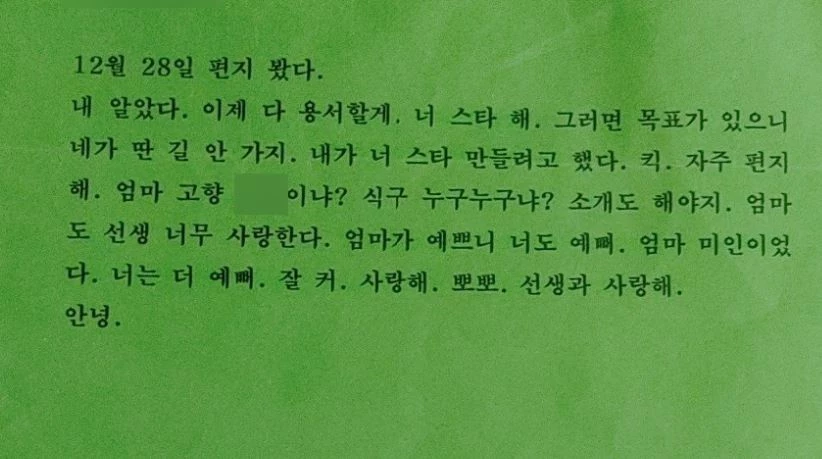 12월 28일 편지 봤다.
내 알았다. 이제 다 용서할게. 너 스타 해. 그러면 목표가 있으니
네가 딴 길 안 가지. 내가 너 스타 만들려고 했다. 킥. 자주 편지
해. 엄마 고향 이냐? 식구 누구누구냐? 소개도 해야지. 엄마
도 선생 너무 사랑한다. 엄마가 예쁘니 너도 예뻐. 엄마 미인이었
다. 너는 더 예뻐. 잘 커. 사랑해. 뽀뽀. 선생과 사랑해.
안녕.